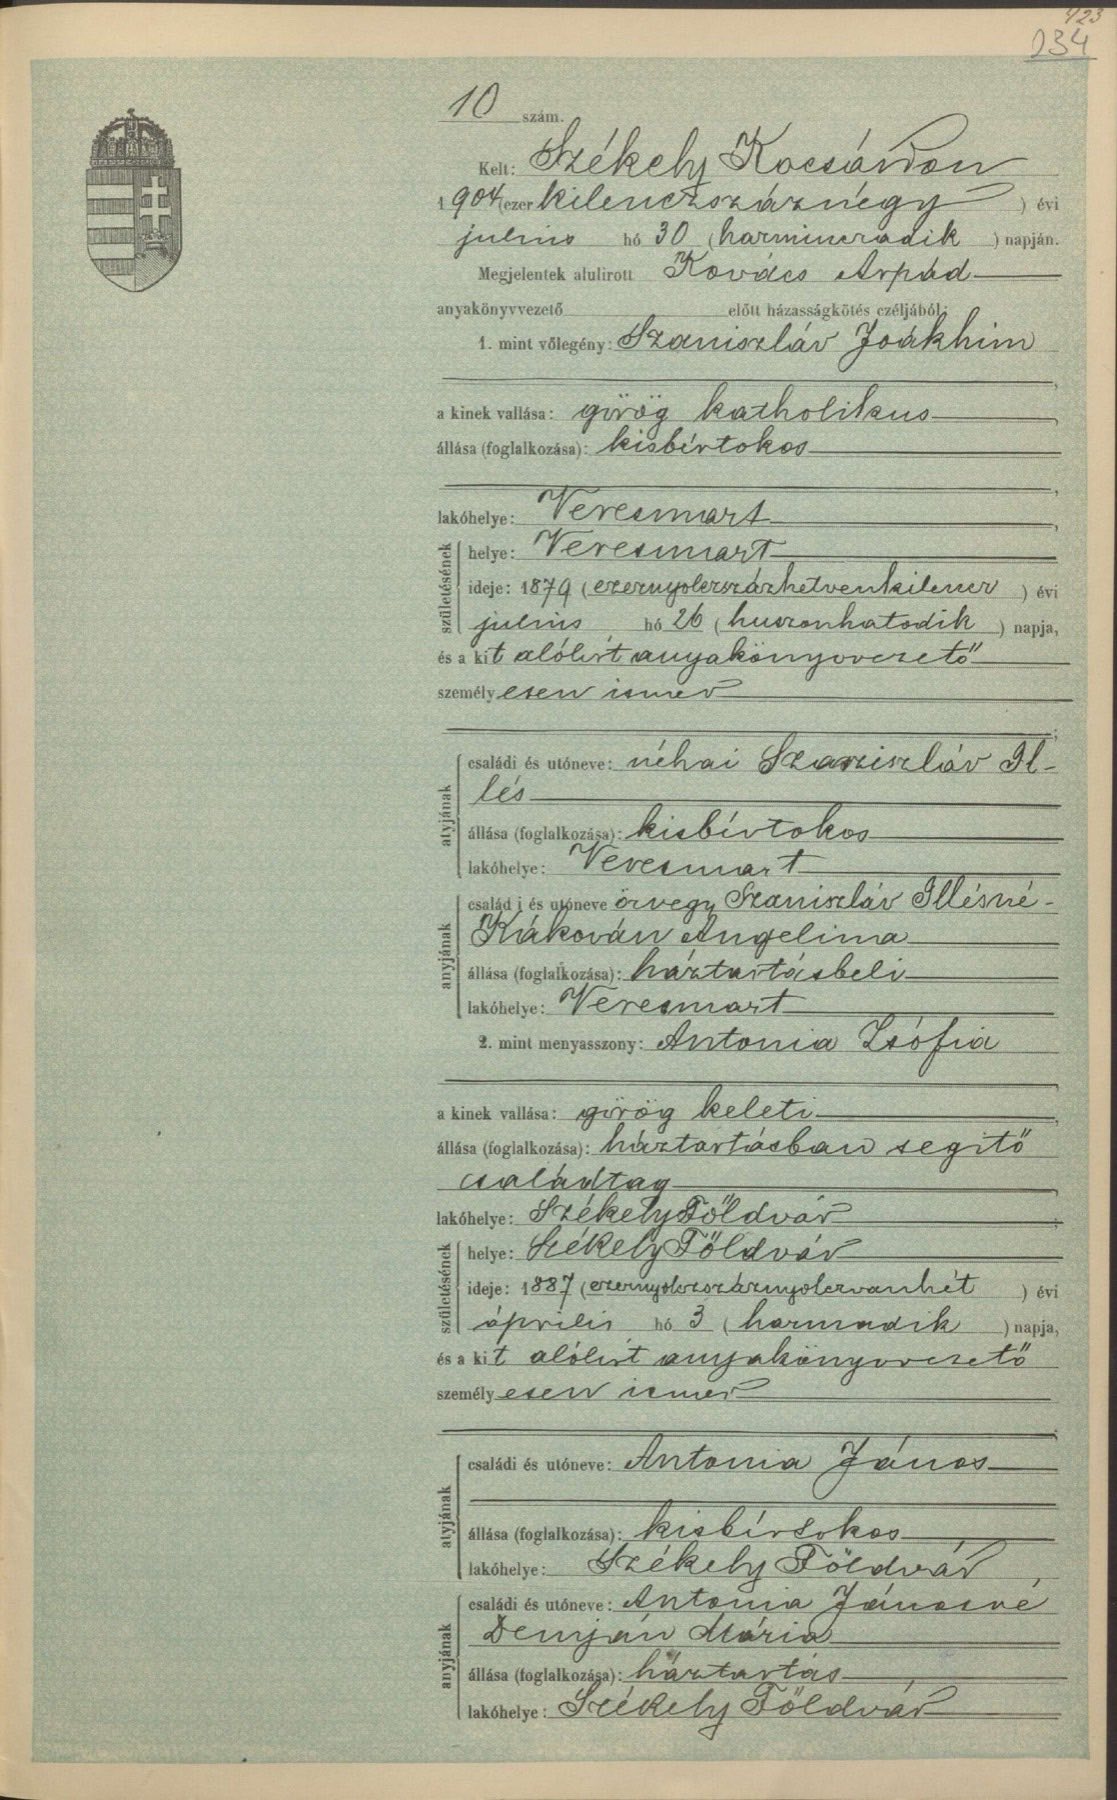 423
234
10 szám.
Kelt: Székely Kocsárdon
1904 (ezer kilenczszáznégy) évi
julius hó 30 (harminczadik) napján.
Megjelentek alulirott Kovács Árpád
anyakönyvvezető előtt házasságkötés czéljából:
1. mint vőlegény: Szaniszláv Joákhim
a kinek vallása: görög katholikus
állása (foglalkozása): kisbirtokos
lakóhelye: Veresmart
születésének helye: Veresmart
ideje: 1879 (ezernyolczszázhetvenkilencz) évi
julius hó 26 (huszonhatodik) napja,
és a kit alólirt anyakönyvvezető
személyesen ismer
atyjának családi és utóneve: néhai Szaniszláv Il-
lés
állása (foglalkozása): kisbirtokos
lakóhelye: Veresmart
anyjának családi és utóneve özvegy Szaniszláv Illésné-
Angelina
állása (foglalkozása): háztartásbeli
lakóhelye: Veresmart
2. mint menyasszony: Antonia Zsófia
a kinek vallása: görög keleti
állása (foglalkozása): háztartásban segitő
családtag
lakóhelye: Székely Földvár
születésének helye: Székely Földvár
ideje: 1887 (ezernyolczszáznyolczvanhét) évi
április hó 3 (harmadik) napja,
és a kit alólirt anyakönyvvezető
személyesen ismer
atyjának családi és utóneve: Antonia János
állása (foglalkozása): kisbirtokos
lakóhelye: Székely Földvár
anyjának családi és utóneve: Antonia Jánosné
Demján Mária
állása (foglalkozása): háztartás
lakóhelye: Székely Földvár